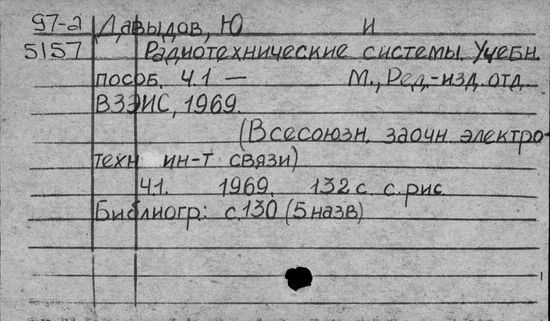 97-2 Давыдов, Ю И
5157 Радиотехнические системы. Учебн.
пособ. Ч.1 — М., Ред.-изд. отд.
ВЗЭИС, 1969.
(Всесоюзн. заочн. электро-
техн ин-т связи)
Ч1. 1969. 132 с. с рис.
Библиогр.: с.130 (5 назв)